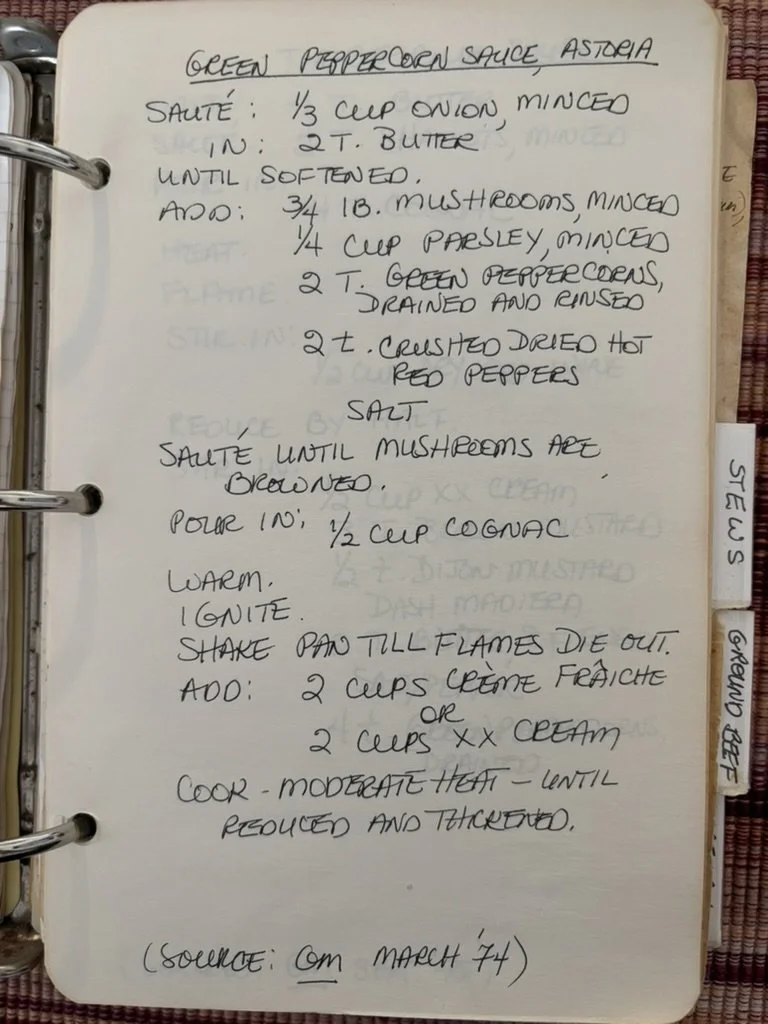 GREEN PEPPERCORN SAUCE, ASTORIA
SAUTÉ: 1/3 CUP ONION, MINCED
IN: 2 T. BUTTER
UNTIL SOFTENED.
ADD: 3/4 lB. MUSHROOMS, MINCED
1/4 CUP PARSLEY, MINCED
2 T. GREEN PEPPERCORNS,
DRAINED AND RINSED
2 t. CRUSHED DRIED HOT
RED PEPPERS
SALT
SAUTÉ UNTIL MUSHROOMS ARE
BROWNED.
POUR IN: 1/2 CUP COGNAC
WARM.
IGNITE.
SHAKE PAN TILL FLAMES DIE OUT.
ADD: 2 CUPS CRÈME FRAÎCHE
OR
2 CUPS XX CREAM
COOK - MODERATE HEAT - UNTIL
REDUCED AND THICKENED.
(SOURCE: GM MARCH '74)
STEWS
GROUND BEEF